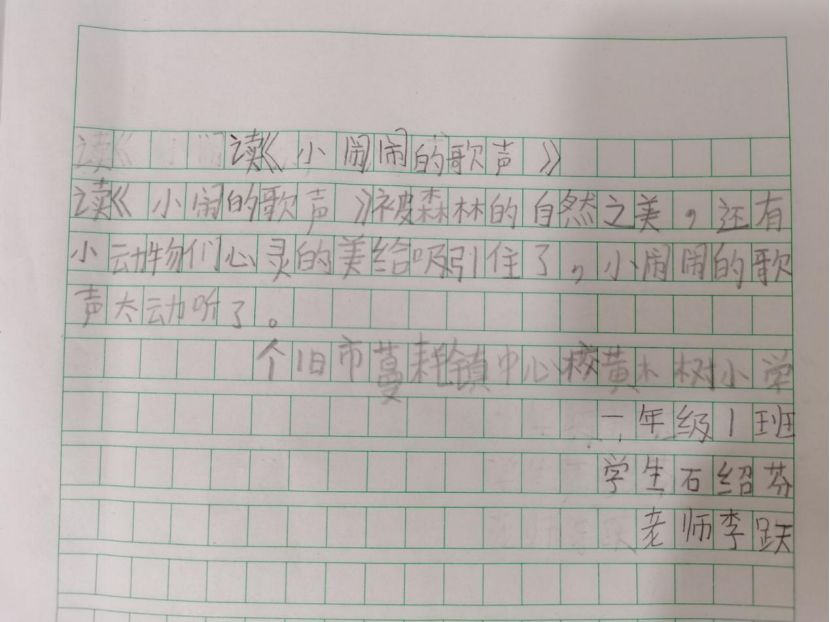 读《小闹闹的歌声》
读《小闹的歌声》被森林的自然之美，还有
小动物们心灵的美给吸引住了，小闹闹的歌
声太动听了。
个旧市蔓耗镇中心校黄木树小学
一年级1班
学生石绍芬
老师李跃